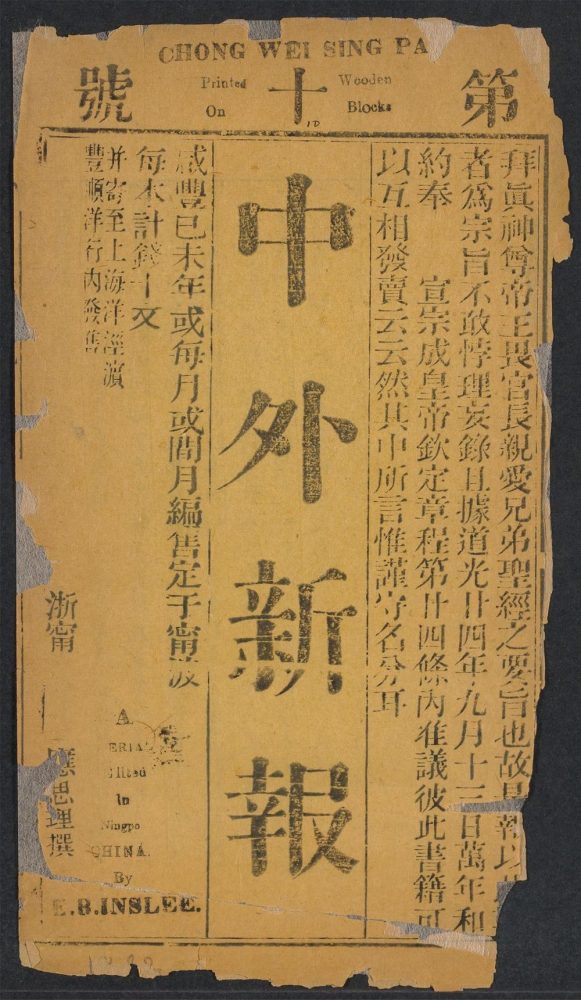 CHONG WEI SING PA
Printed Wooden
On Blocks
第十號
拜眞神尊帝王畏官長親愛兄弟聖經之要旨也故是報以此
者爲宗旨不敢悖理妄錄且據道光廿四年九月十三日萬年和
約奉 宣宗成皇帝欽定章程第廿四條內准議彼此書籍可
以互相發賣云云然其中所言惟謹守名分耳
中外新報
咸豐己未年或每月或間月編售定于甯波
每本計錢十文
幷寄至上海洋涇濱
豐順洋行內發售
浙甯
應思理撰
A
ERIA
In
Ningpo
CHINA.
By
E.B.INSLEE.